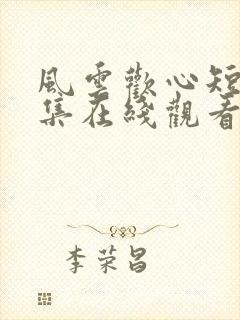 風雲歡心短
集在綫觀看
李荣昌